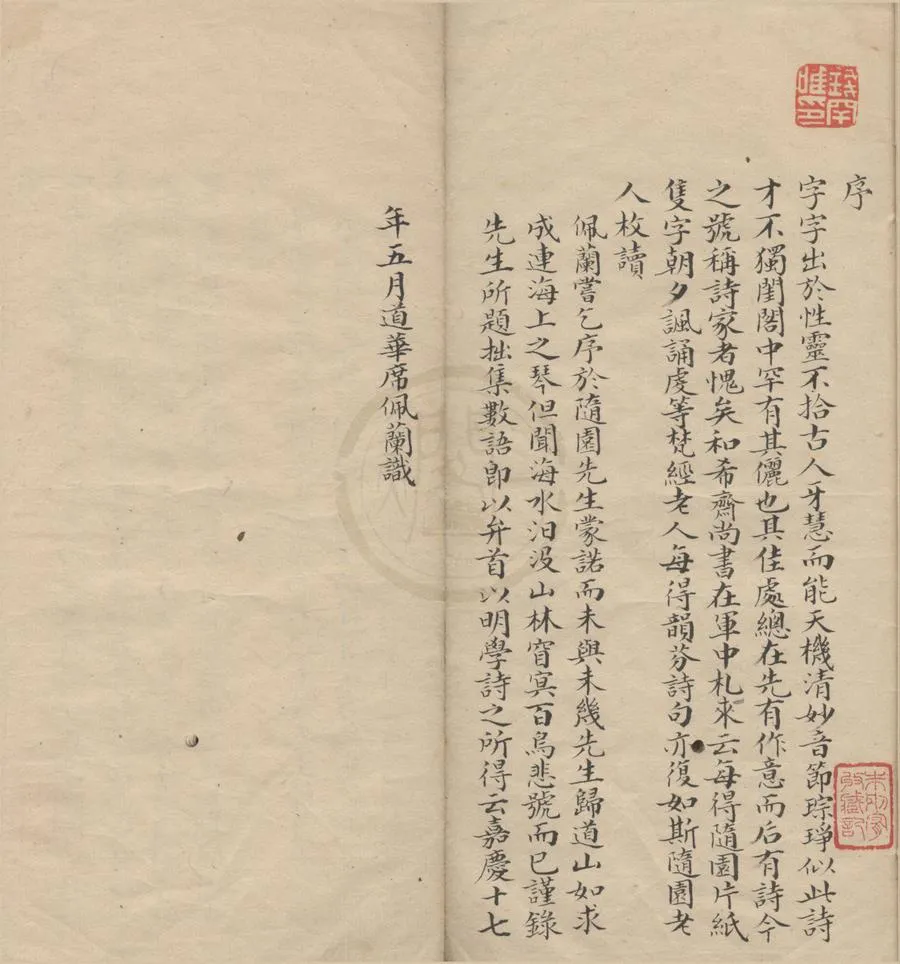 序
字字出於性靈不拾古人牙慧而能天機清妙音節琮琤似此詩
才不獨閨閤中罕有其儷也其佳處總在先有作意而后有詩今
之號稱詩家者愧矣和希齋尚書在軍中札來云每得隨園片紙
隻字朝夕諷誦虔等梵經老人每得韻芬詩句亦復如斯隨園老
人枚讀
佩蘭嘗乞序於隨園先生蒙諾而未與未幾先生歸道山如求
成連海上之琴但聞海水汩汲山林窅冥百鳥悲號而已謹錄
先生所題拙集數語即以弁首以明學詩之所得云嘉慶十七
年五月道華席佩蘭識